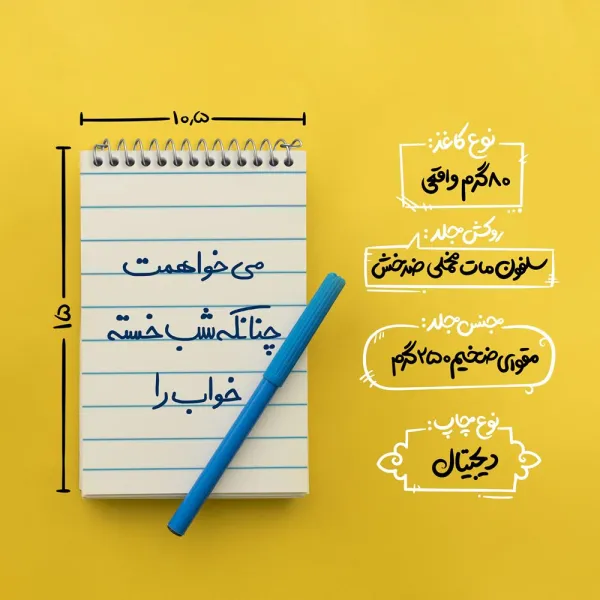 ۱۰,۵
۱۵
می خواهمت
چنانکه شب خسته
خواب را
نوع کاغذ:
۸۰گرم واقعی
روکش جلد:
سلفون مات مخملی ضدخش
جنس جلد:
مقوای ضخیم ۲۵۰گرم
نوع چاپ:
دیجیتال